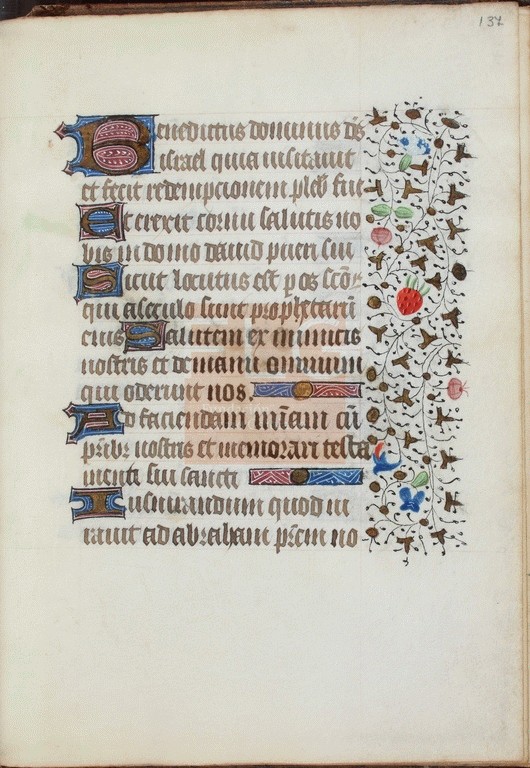 137
Benedictus dominus d̄s
israel quia uisitauit
et fecit redempcionem pleb̄ sue
Et erexit cornu salutis no
bis in domo dauid pueri sui
Sicut locutus est p os sc̄oꝝ
qui a seculo sunt prophetarū
eius Salutem ex inimicis
nostris et de manu omnium
qui oderunt nos.
Ad faciendam mīam cū
pr̄ibꝫ nostris et memorari testa
menti sui sancti
Iusiurandum quod iu
rauit ad abraham pr̄em no